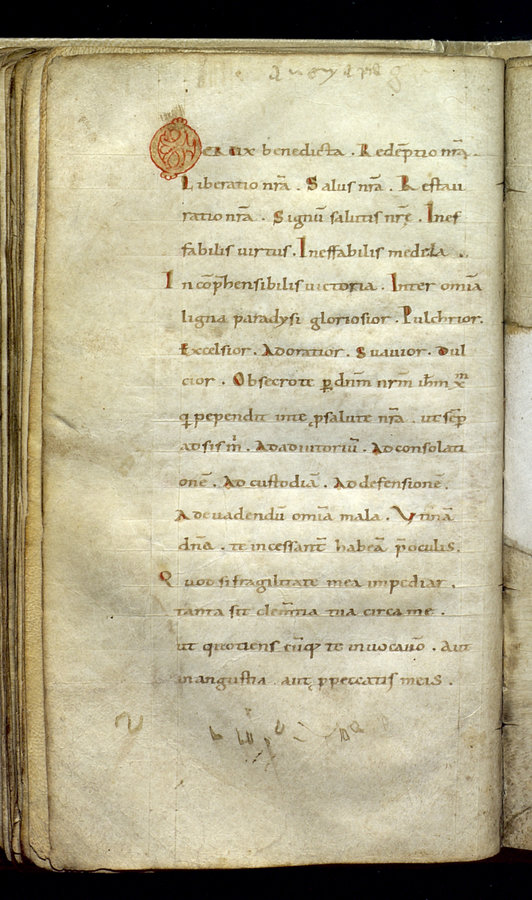 O ber crux benedicta . Redēptio nr̄a .
Liberatio nr̄a . Salus nr̄a . Restau
ratio nr̄a . Signū salutis nr̄ę . Inef
fabilis uirtus . Ineffabilis medela .
Incōp̄hensibilis uictoria . Inter omīa
ligna paradysi gloriosior . Pulchrior .
Excelsior . Adoratior . Suauior . Dul
cior . Obsecro te p̱ dnm̄ nrm̄ ihm̄ xm̄
q̱ pependit in te p̱ salute nr̄a . ut sēp
ad sis m̄ . Ad adiutoriū . Ad consolati
onē . Ad custodiā . Ad defensionē .
Ad euadendū omīa mala . Vt inā
dn̄a . te incessant̄ habeā p̱ oculis .
Quod si fragilitate mea impediar .
tanta sit clem̄tia tua circa me .
ut quotiens cūq; te inuocauō . Aut
in angustia . aut p̱ peccatis meis .